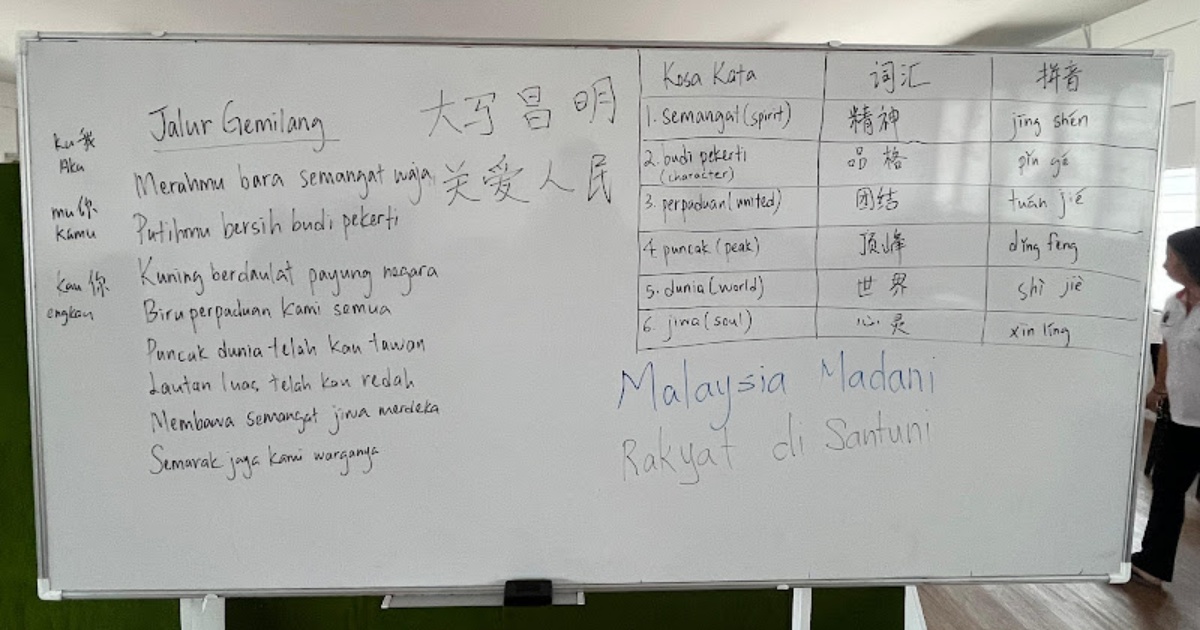 ku 我
Aku
mu 你
kamu
kau 你
engkau
Jalur Gemilang
Merahmu bara semangat waja
Putihmu bersih budi pekerti
Kuning berdaulat payung negara
Biru perpaduan kami semua
Puncak dunia telah kau tawan
Lautan luas telah kau redah
Membawa semangat jiwa merdeka
Semarak jaya kami warganya
大写昌明
关爱人民
Kosa Kata 词汇 拼音
1. semangat (spirit) 精神 jīng shén
2. budi pekerti (character) 品格 pǐn gé
3. perpaduan (united) 团结 tuán jié
4. puncak (peak) 顶峰 dǐng fēng
5. dunia (world) 世界 shì jiè
6. jiwa (soul) 心灵 xīn líng
Malaysia Madani
Rakyat di Santuni